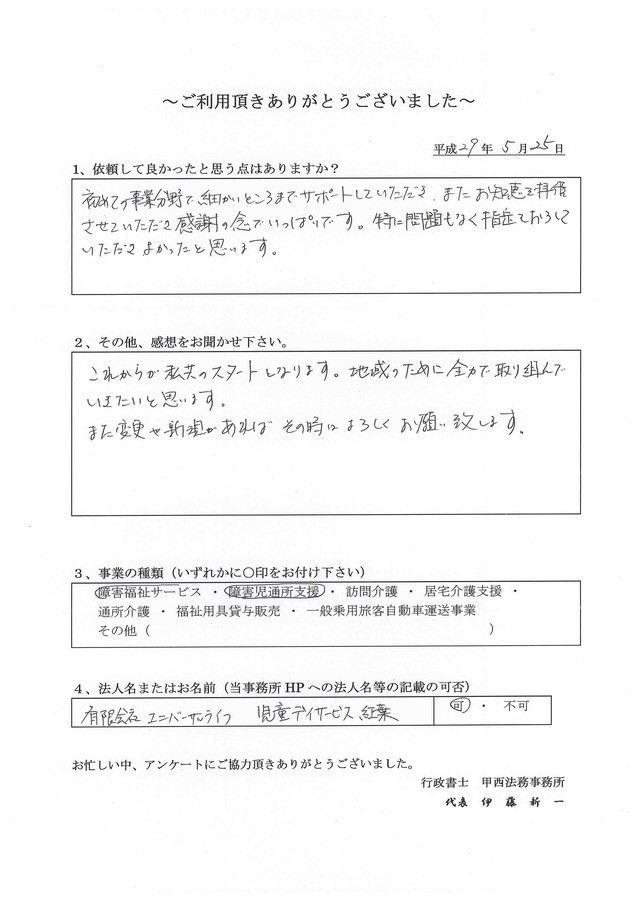 ～ご利用頂きありがとうございました～
平成29年 5月25日
1、依頼して良かったと思う点はありますか？
初めての事業分野で細かいところまでサポートしていただき、またお知恵を拝借
させていただき感謝の念でいっぱいです。特に問題もなく指定ておろして
いただきよかったと思います。
2、その他、感想をお聞かせ下さい。
これからが私共のスタートとなります。地域のために全力で取り組んで
いきたいと思います。
また変更や新規があればその時はよろしくお願い致します。
3、事業の種類（いずれかに〇印をお付け下さい）
障害福祉サービス ・ 障害児通所支援 ・ 訪問介護 ・ 居宅介護支援 ・
通所介護 ・ 福祉用具貸与販売 ・ 一般乗用旅客自動車運送事業
その他（ ）
4、法人名またはお名前（当事務所HPへの法人名等の記載の可否）
有限会社 ユニバーサルライフ 児童デイサービス 紅葉 可 ・ 不可
お忙しい中、アンケートにご協力頂きありがとうございました。
行政書士 甲西法務事務所
代表 伊藤新一